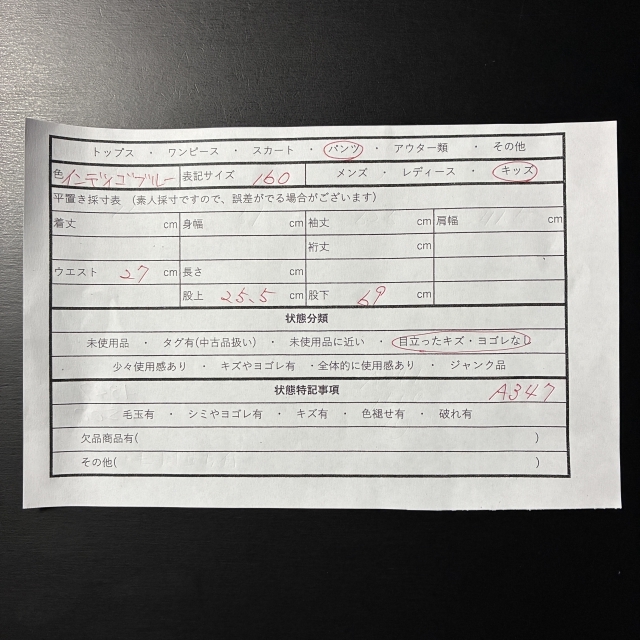 トップス ・ ワンピース ・ スカート ・ パンツ ・ アウター類 ・ その他
色 インディゴブルー 表記サイズ 160 メンズ ・ レディース ・ キッズ
平置き採寸表 (素人採寸ですので、誤差がでる場合がございます)
着丈 cm 身幅 cm 袖丈 cm 肩幅 cm
裄丈 cm
ウエスト 27 cm 長さ cm
股上 25.5 cm 股下 69 cm
状態分類
未使用品 ・ タグ有(中古品扱い) ・ 未使用品に近い ・ 目立ったキズ・ヨゴレなし
少々使用感あり ・ キズやヨゴレ有 ・全体的に使用感あり ・ ジャンク品
状態特記事項 A347
毛玉有 ・ シミやヨゴレ有 ・ キズ有 ・ 色褪せ有 ・ 破れ有
欠品商品有( )
その他( )